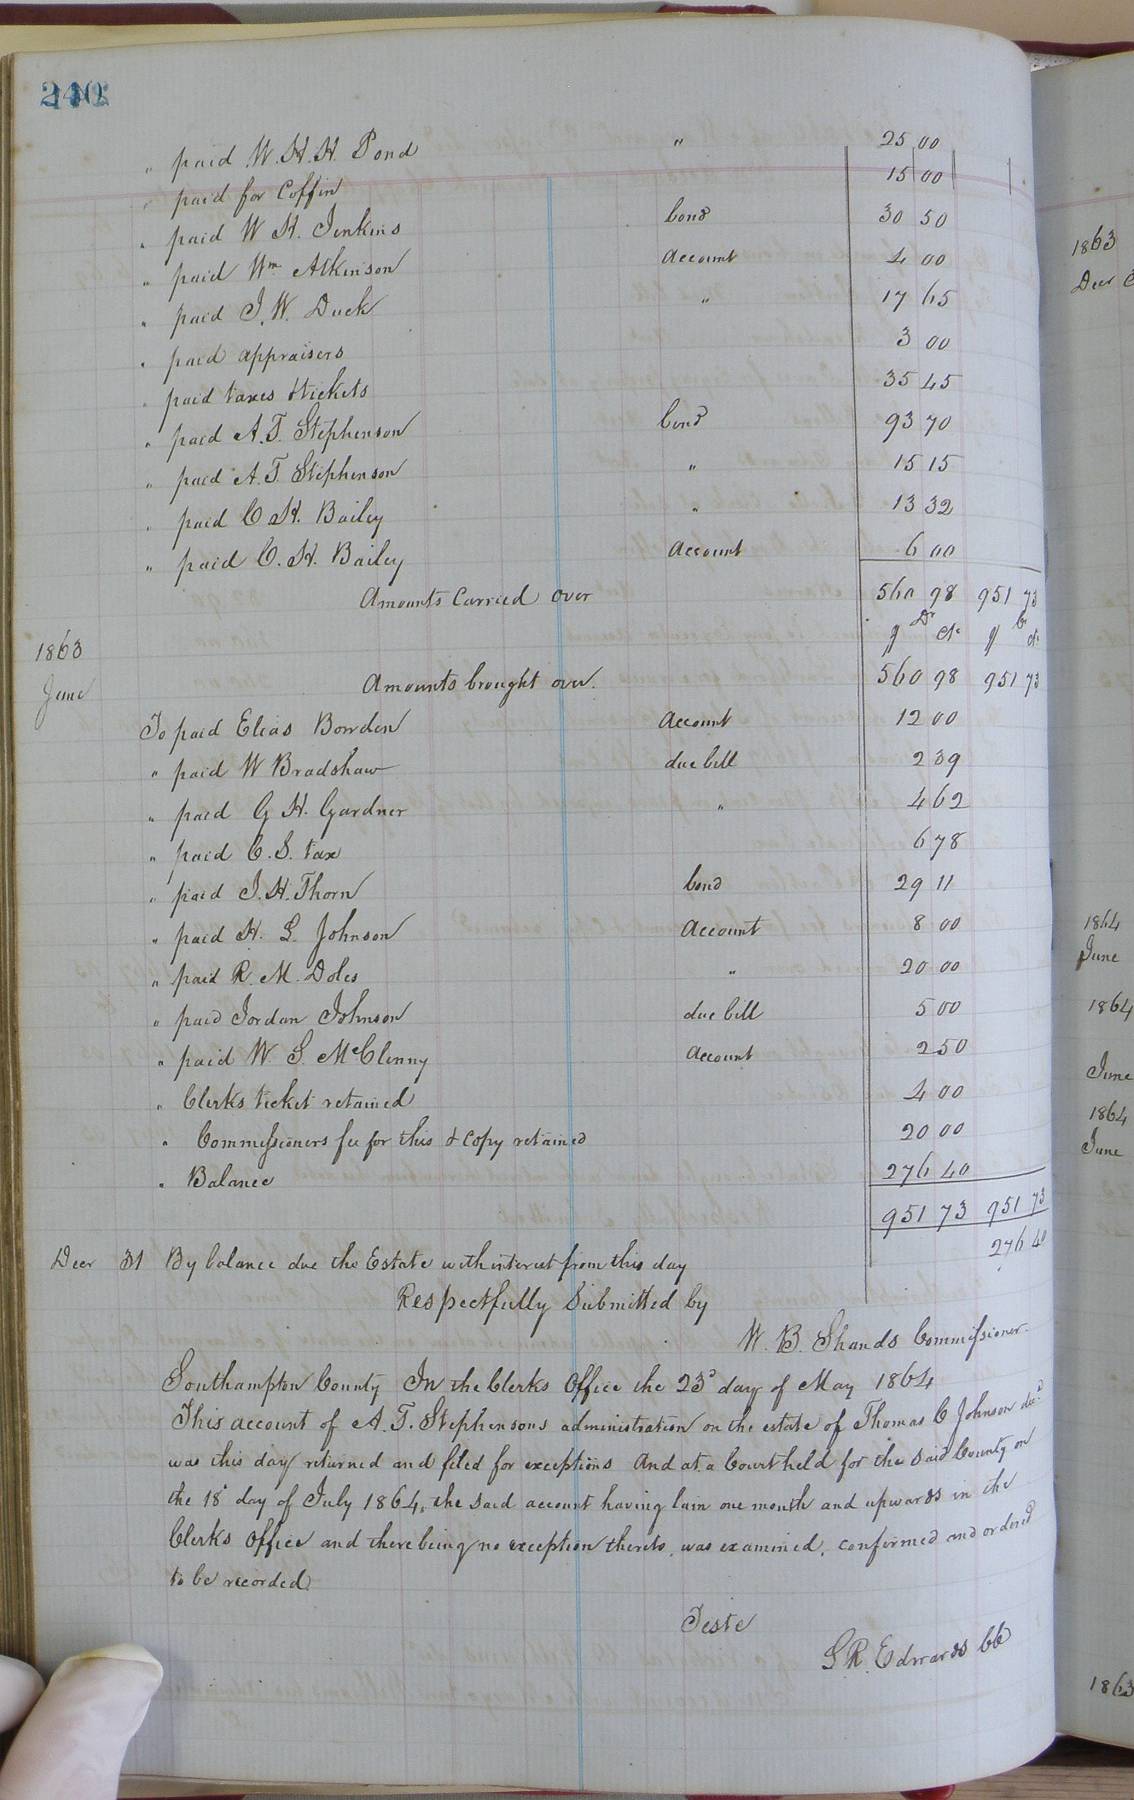 240
" paid W. H. H. Pond " 25 00
" paid for Coffin 15 00
" paid W H. Jenkins bond 30 50
" paid Wm Atkinson account 4 00
" paid J. W. Duck " 17 65
" paid appraisers 3 00
" paid taxes & tickets 35 45
" paid A. T. Stephenson bond 93 70
" paid A. T. Stephenson " 15 15
" paid C. H. Bailey " 13 32
" paid C. H. Bailey account 6 00
Amounts Carried over 560 98 951 73
1863 $ Dr cts $ Cr cts
June Amounts brought over. 560 98 951 73
To paid Elias Bowden account 12 00
" paid W Bradshaw due bill 2 39
" paid G H. Gardner " 4 62
" paid C. S. tax 6 78
" paid J. H. Thorn bond 29 11
" paid H. L. Johnson account 8 00
" paid R. M. Doles " 20 00
" paid Jordan Johnson due bill 5 00
" paid W. S. McClenny account 2 50
" Clerks ticket retained 4 00
" Commissioners fee for this & copy retained 20 00
" Balance 276 40
951 73 951 73
Decr 31 By balance due the Estate with interest from this day 276 40
Respectfully Submitted by
W. B. Shands Commissioner.
Southampton County In the Clerks Office the 23d day of May 1864
This account of A. T. Stephensons administration on the estate of Thomas C Johnson decd
was this day returned and filed for exceptions And at a Court held for the said County on
the 18 day of July 1864, the said account having lain one month and upwards in the
Clerks Office and there being no exception thereto, was examined, confirmed and ordered
to be recorded
Teste
L R. Edwards CC
1863
Decr
1864
June
1864
June
1864
June
1863